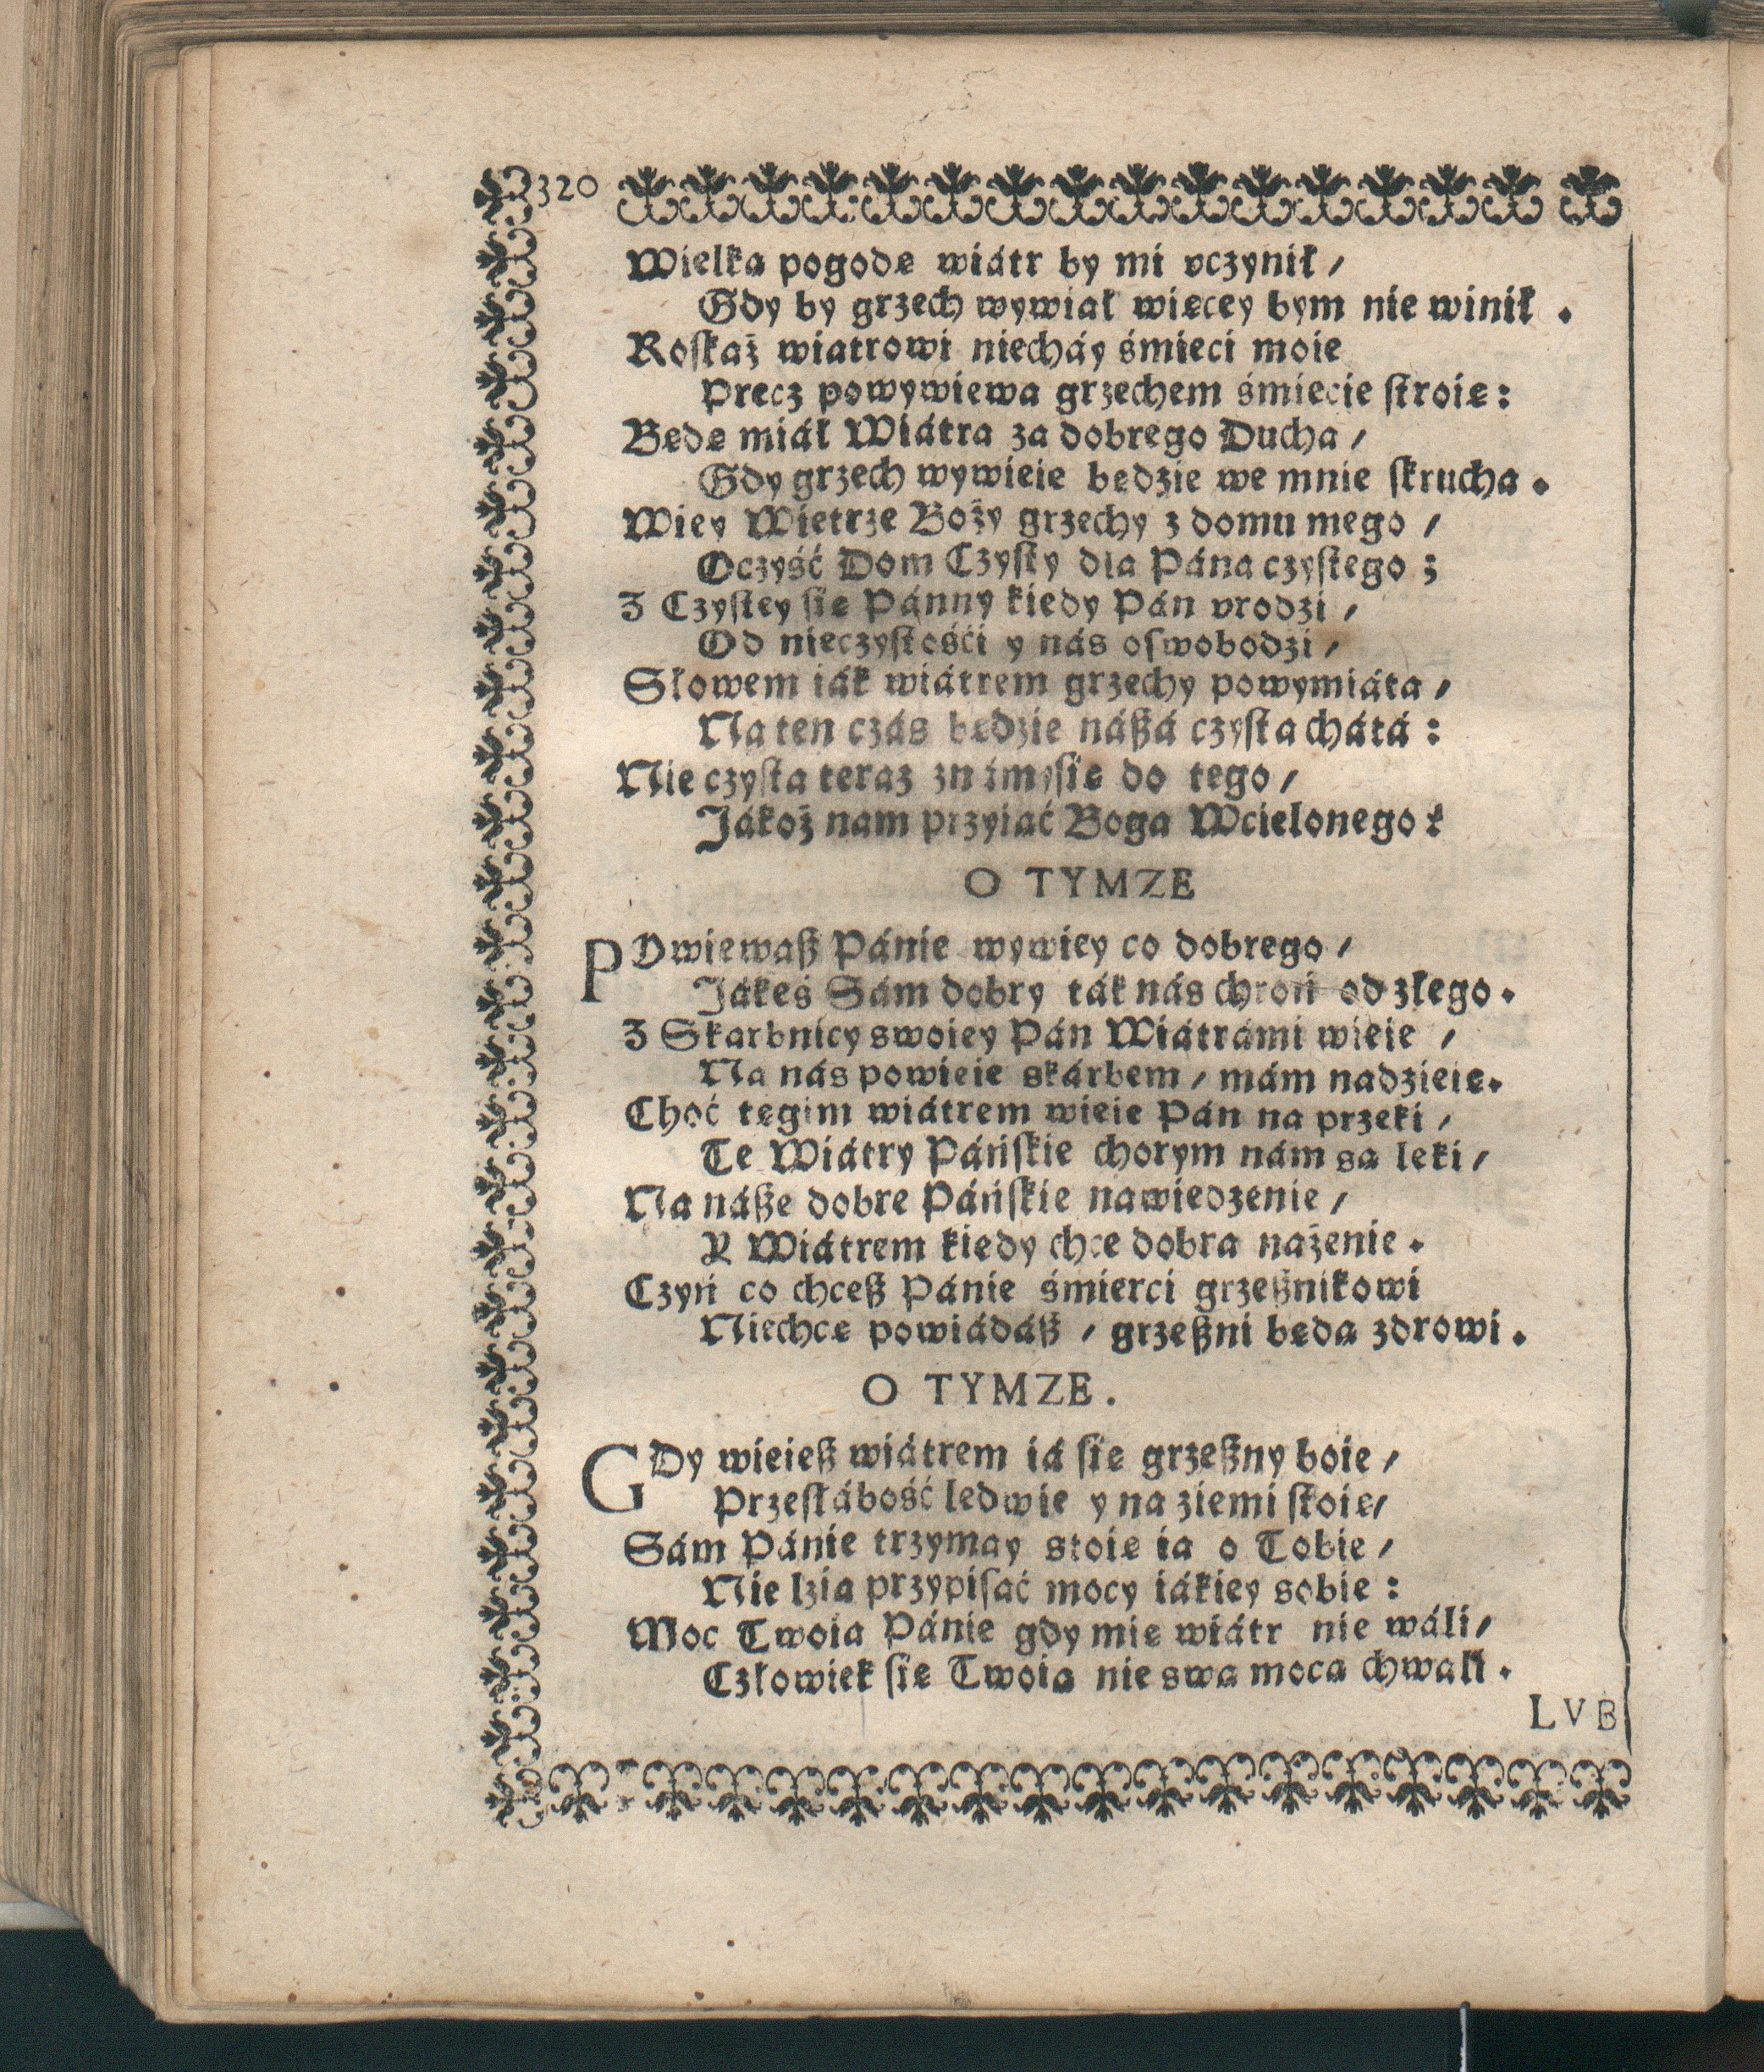 320
Wielką pogodę wiátr by mi vczynił /
Gdy by grzech wywiał więcey bym nie winił .
Roſkaż wiatrowi niecháy śmieci moie
Precz powywiewa grzechem śmiecie ſtroię :
Będę miáł Wiátra za dobrego Ducha /
Gdy grzech wywieie będzie we mnie ſkrucha .
Wiey Wietrze Boży grzechy z domu mego /
Oczyść Dom Czyſty dla Pána czyſtego ;
Z Czyſtey ſię Pánny kiedy Pán vrodzi /
Od nieczyſtośći y nás oſwobodzi /
Słowem iák wiátrem grzechy powymiáta /
Na ten czás będzie náßá czyſta chátá :
Nie czyſta teraz do tego /
Jákoż nam przyiąć Boga Wcielonego ?
O TYMZE
POwiewaß Pánie wywiey co dobrego /
Jákeś Sám dobry ták nás chroń od złego .
Z Skarbnicy swoiey Pán Wiátrámi wieie /
Na nás powieie skárbem / mám nadzieię .
Choć tęgim wiátrem wieie Pán na przeki /
Te Wiátry Páńſkie chorym nám są leki /
Na náße dobre Páńſkie nawiedzenie /
Y Wiátrem kiedy chce dobra nażenie .
Czyń co chceß Pánie śmierci grzeßnikowi
Niechcę powiádáß / grzeßni będą zdrowi .
O TYMZE .
GDy wieieß wiátrem iá ſię grzeßny boię /
Przeſłábość ledwie y na ziemi ſtoię /
Sám Pánie trzymay stoię ia o Tobie /
Nie lzia przypiſáć mocy iákiey sobie :
Moc Twoia Pánie gdy mię wiátr nie wáli /
Człowiek ſię Twoią nie swą mocą chwali .
LVB